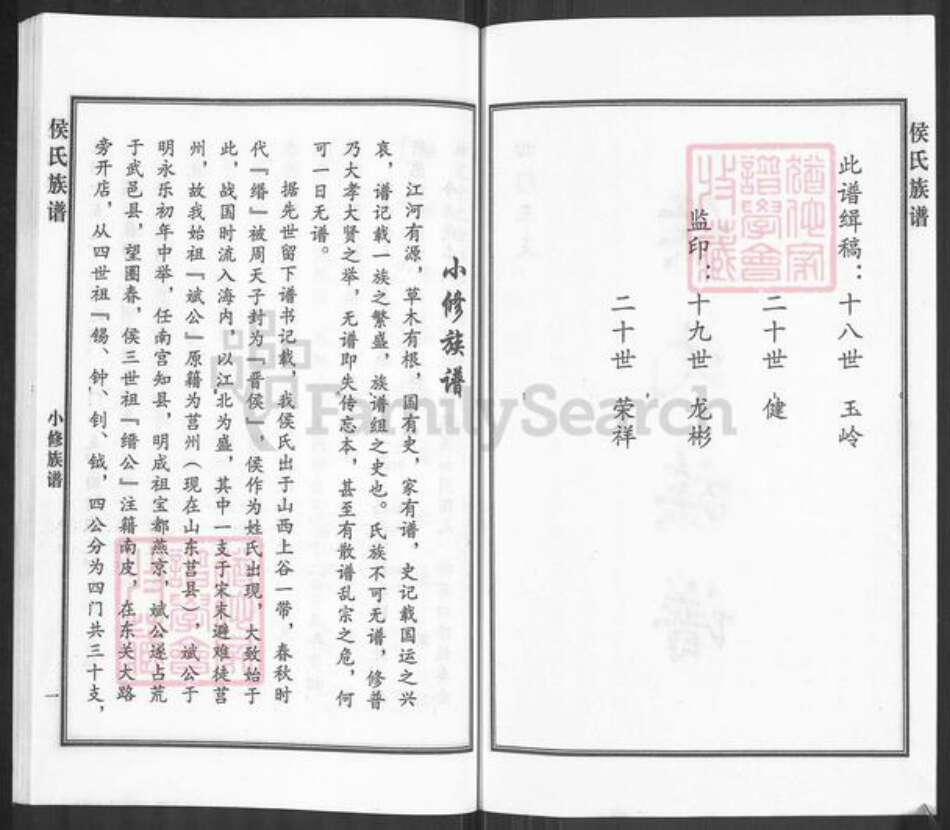 侯氏族谱
此谱缉稿：十八世 玉岭
二十世 健
监印：十九世 龙彬
二十世 荣祥
小修族谱
江河有源，草木有根，国有史，家有谱，史记载国运之兴
衰，谱记载一族之繁盛，族谱组之史也。氏族不可无谱，修普
乃大孝大贤之举，无谱即失传忘本，甚至有散谱乱宗之危，何
可一日无谱。
据先世留下谱书记载，我侯氏出于山西上谷一带，春秋时
代『缗』被周天子封为『晋侯』，侯作为姓氏出现，大致始于
此，战国时流入海内，以江北为盛，其中一支于宋末避难徒莒
州，故我始祖『斌公』原籍为莒州（现在山东莒县），斌公于
明永乐初年中举，任南宫知县，明成祖宝都燕京，斌公遂占荒
于武邑县，望圈春，侯三世祖『缙公』注籍南皮，在东关大路
旁开店，从四世祖『锡、钟、钊、钺，四公分为四门共三十支，
侯氏族谱
小修族谱
一
遗传家谱学会收藏
FamilySearch